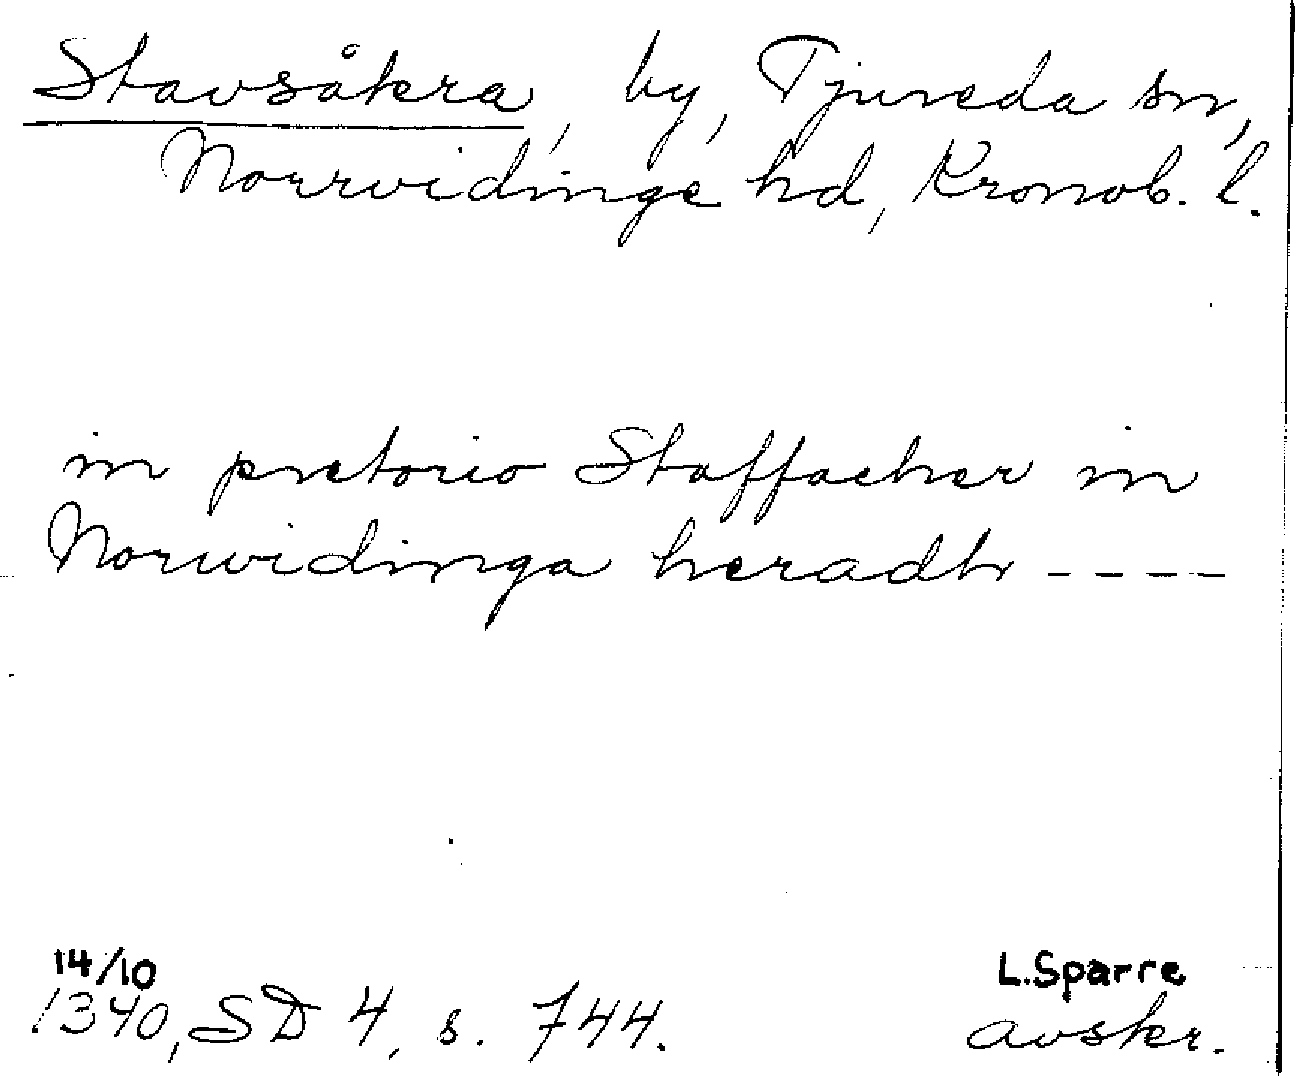 Stavsåkra, by, Tjureda sn,
Norrvidinge hd, Kronob. l.
in pretorio Staffacher in
Norwidinga heradh ----
14/10
1340, SD 4, s. 744.
L. Sparre
avskr.